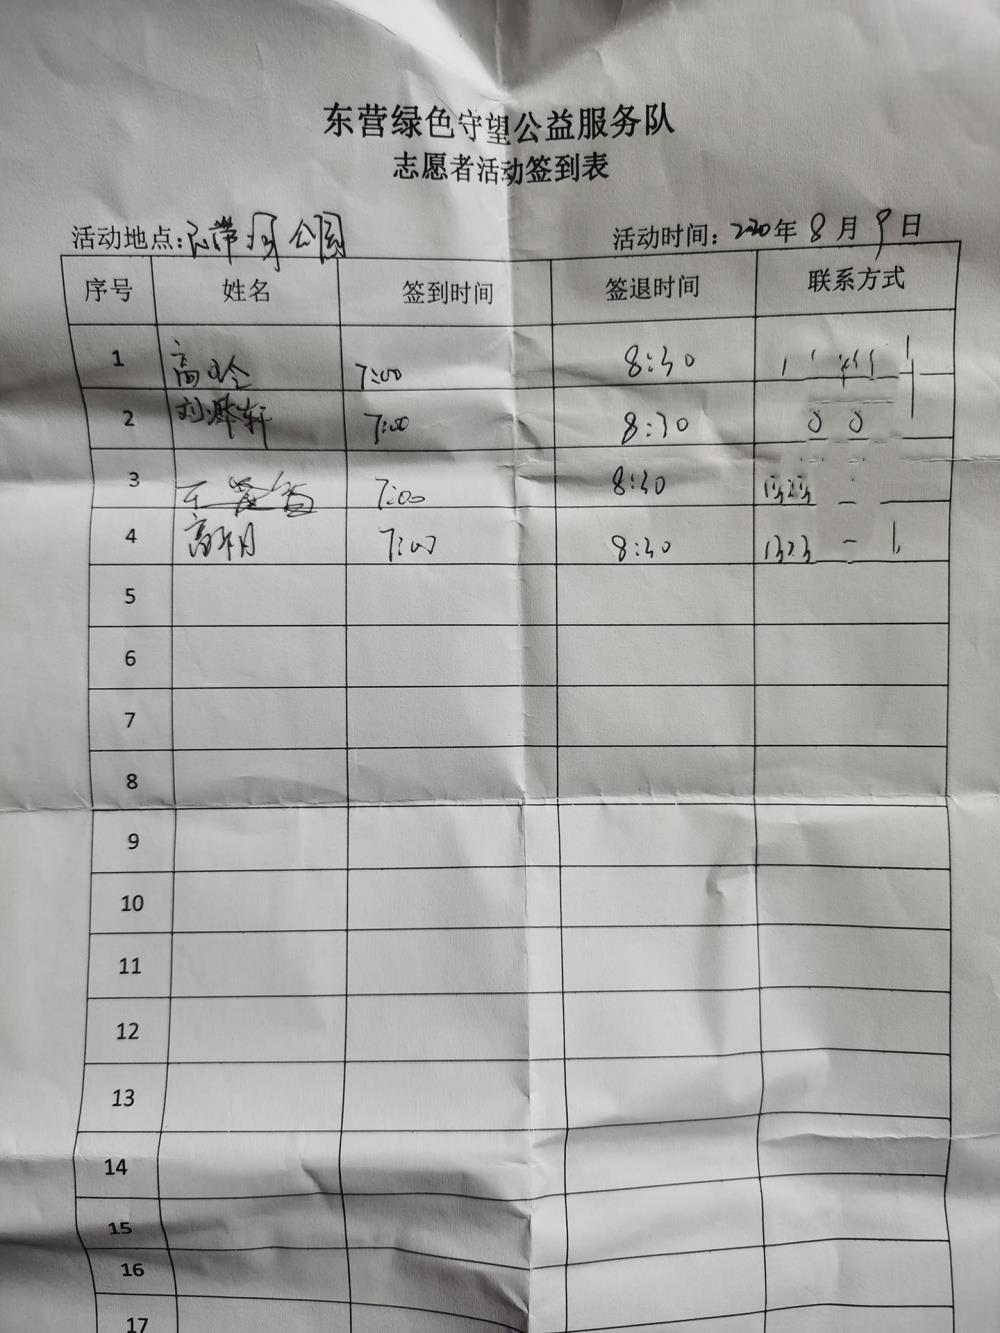 东营绿色守望公益服务队
志愿者活动签到表
活动地点: 带河公园 活动时间: 2020年8月9日
序号 姓名 签到时间 签退时间 联系方式
1 高 7:00 8:30
2 刘 轩 7:00 8:30
3 王 7:00 8:30
4 高 月 7:00 8:30 1323
5
6
7
8
9
10
11
12
13
14
15
16
17